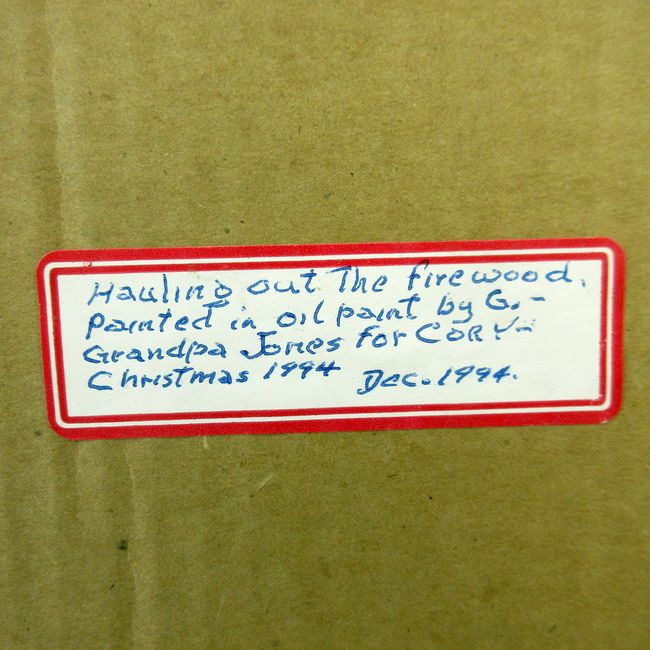 Hauling out The firewood.
Painted in oil paint by G.-
Grandpa Jones for CORY-
Christmas 1994 Dec. 1994.